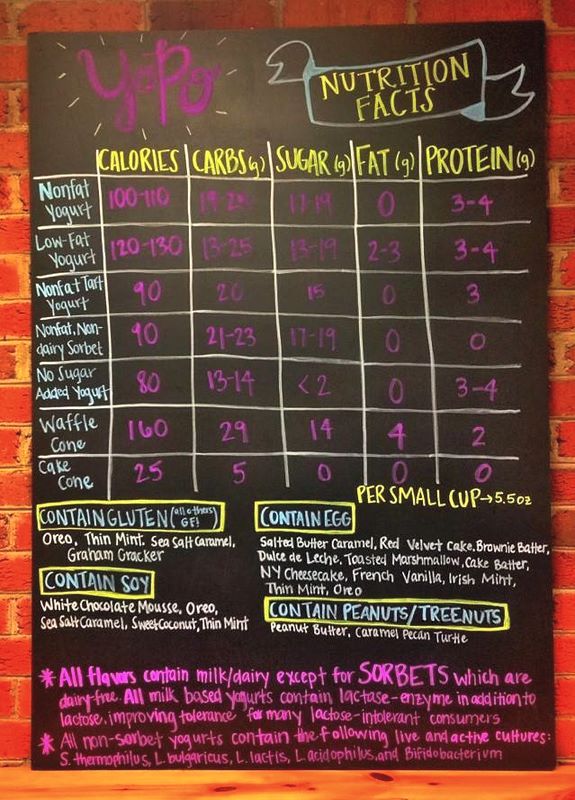 YoPo
NUTRITION
FACTS
CALORIES CARBS(g) SUGAR (g) FAT (g) PROTEIN(g)
Nonfat Yogurt 100-110 17-19 0 3-4
Low-Fat Yogurt 120-130 13-25 13-19 2-3 3-4
Nonfat Tart Yogurt 90 20 15 0 3
Nonfat, Non-dairy Sorbet 90 21-23 17-19 0 0
No Sugar Added Yogurt 80 13-14 <2 0 3-4
Waffle Cone 160 29 14 4 2
Cake Cone 25 5 0 0 0
PER SMALL CUP→5.5oz
CONTAIN GLUTEN (all others GF!)
Oreo, Thin Mint, Sea Salt Caramel,
Graham Cracker
CONTAIN SOY
White Chocolate Mousse, Oreo,
Sea Salt Caramel, Sweet Coconut, Thin Mint
CONTAIN EGG
Salted Butter Caramel, Red Velvet Cake, Brownie Batter,
Dulce de Leche, Toasted Marshmallow, Cake Batter,
NY Cheesecake, French Vanilla, Irish Mint,
Thin Mint, Oreo
CONTAIN PEANUTS/TREENUTS
Peanut Butter, Caramel Pecan Turtle
* All flavors contain milk/dairy except for SORBETS which are
dairy-free. All milk based yogurts contain lactase-enzyme in addition to
lactose, improving tolerance for many lactose-intolerant consumers
* All non-sorbet yogurts contain the following live and active cultures:
S. thermophilus, L. bulgaricus, L. lactis, L. acidophilus, and Bifidobacterium